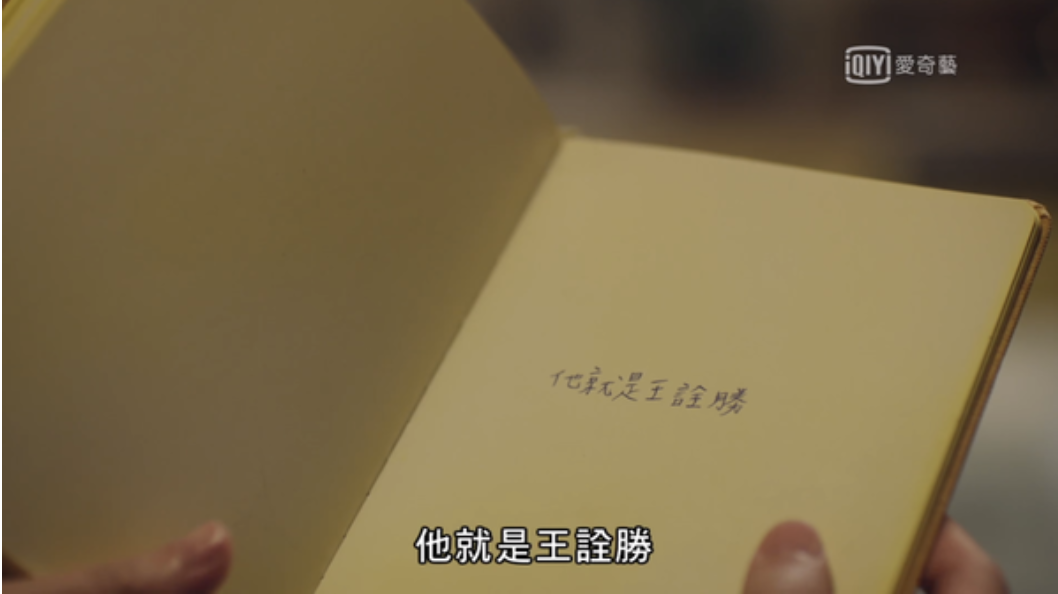 iQIYI 愛奇藝
他就是王詮勝
他就是王詮勝